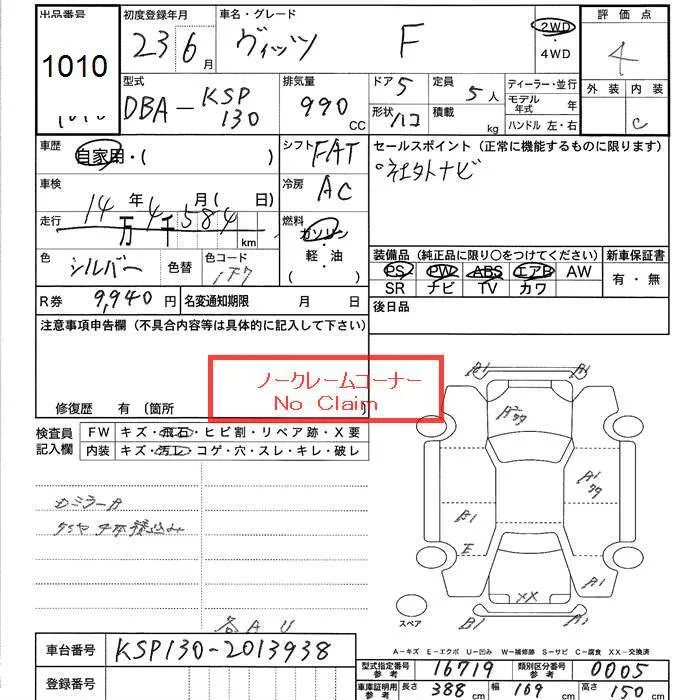 出品番号
1010
初度登録年月
23 6月
車名・グレード
ヴィッツ F
2WD
・
4WD
評価点
4
外装 内装
C
型式
DBA-KSP130
排気量
990 CC
ドア 5
形状 ハコ
定員 5人
積載 kg
ディーラー・並行
モデル年式 年
ハンドル 左・右
車歴
自家用・( )
シフト FAT
セールスポイント (正常に機能するものに限ります)
社外ナビ
車検
年 月( 日)
冷房 AC
走行
14万4千584 km
燃料
ガソリン
・
軽・油
( )
色
シルバー
色替
色コード
1F7
装備品 (純正品に限り○をつけてください)
PS PW ABS エアB AW
SR ナビ TV カワ
新車保証書
有・無
R券 9,940円
名変通知期限 月 日
後日品
注意事項申告欄 (不具合内容等は具体的に記入して下さい)
ノークレームコーナー
No Claim
修復歴 有 〔箇所
検査員記入欄
FW キズ・飛石・ヒビ割・リペア跡・X要
内装 キズ・汚レ・コゲ・穴・スレ・キレ・破レ
タイヤ4本積込み
各AU
A1
A1
A1
E
XX
スペア
A-キズ E-エクボ U-凹み W-補修跡 S-サビ C-腐食 XX-交換済
車台番号 KSP130-2013938
登録番号
型式指定番号参考 16719
類別区分番号参考 0005
車庫証明用参考 長さ 388 cm 幅 169 cm 高さ 150 cm